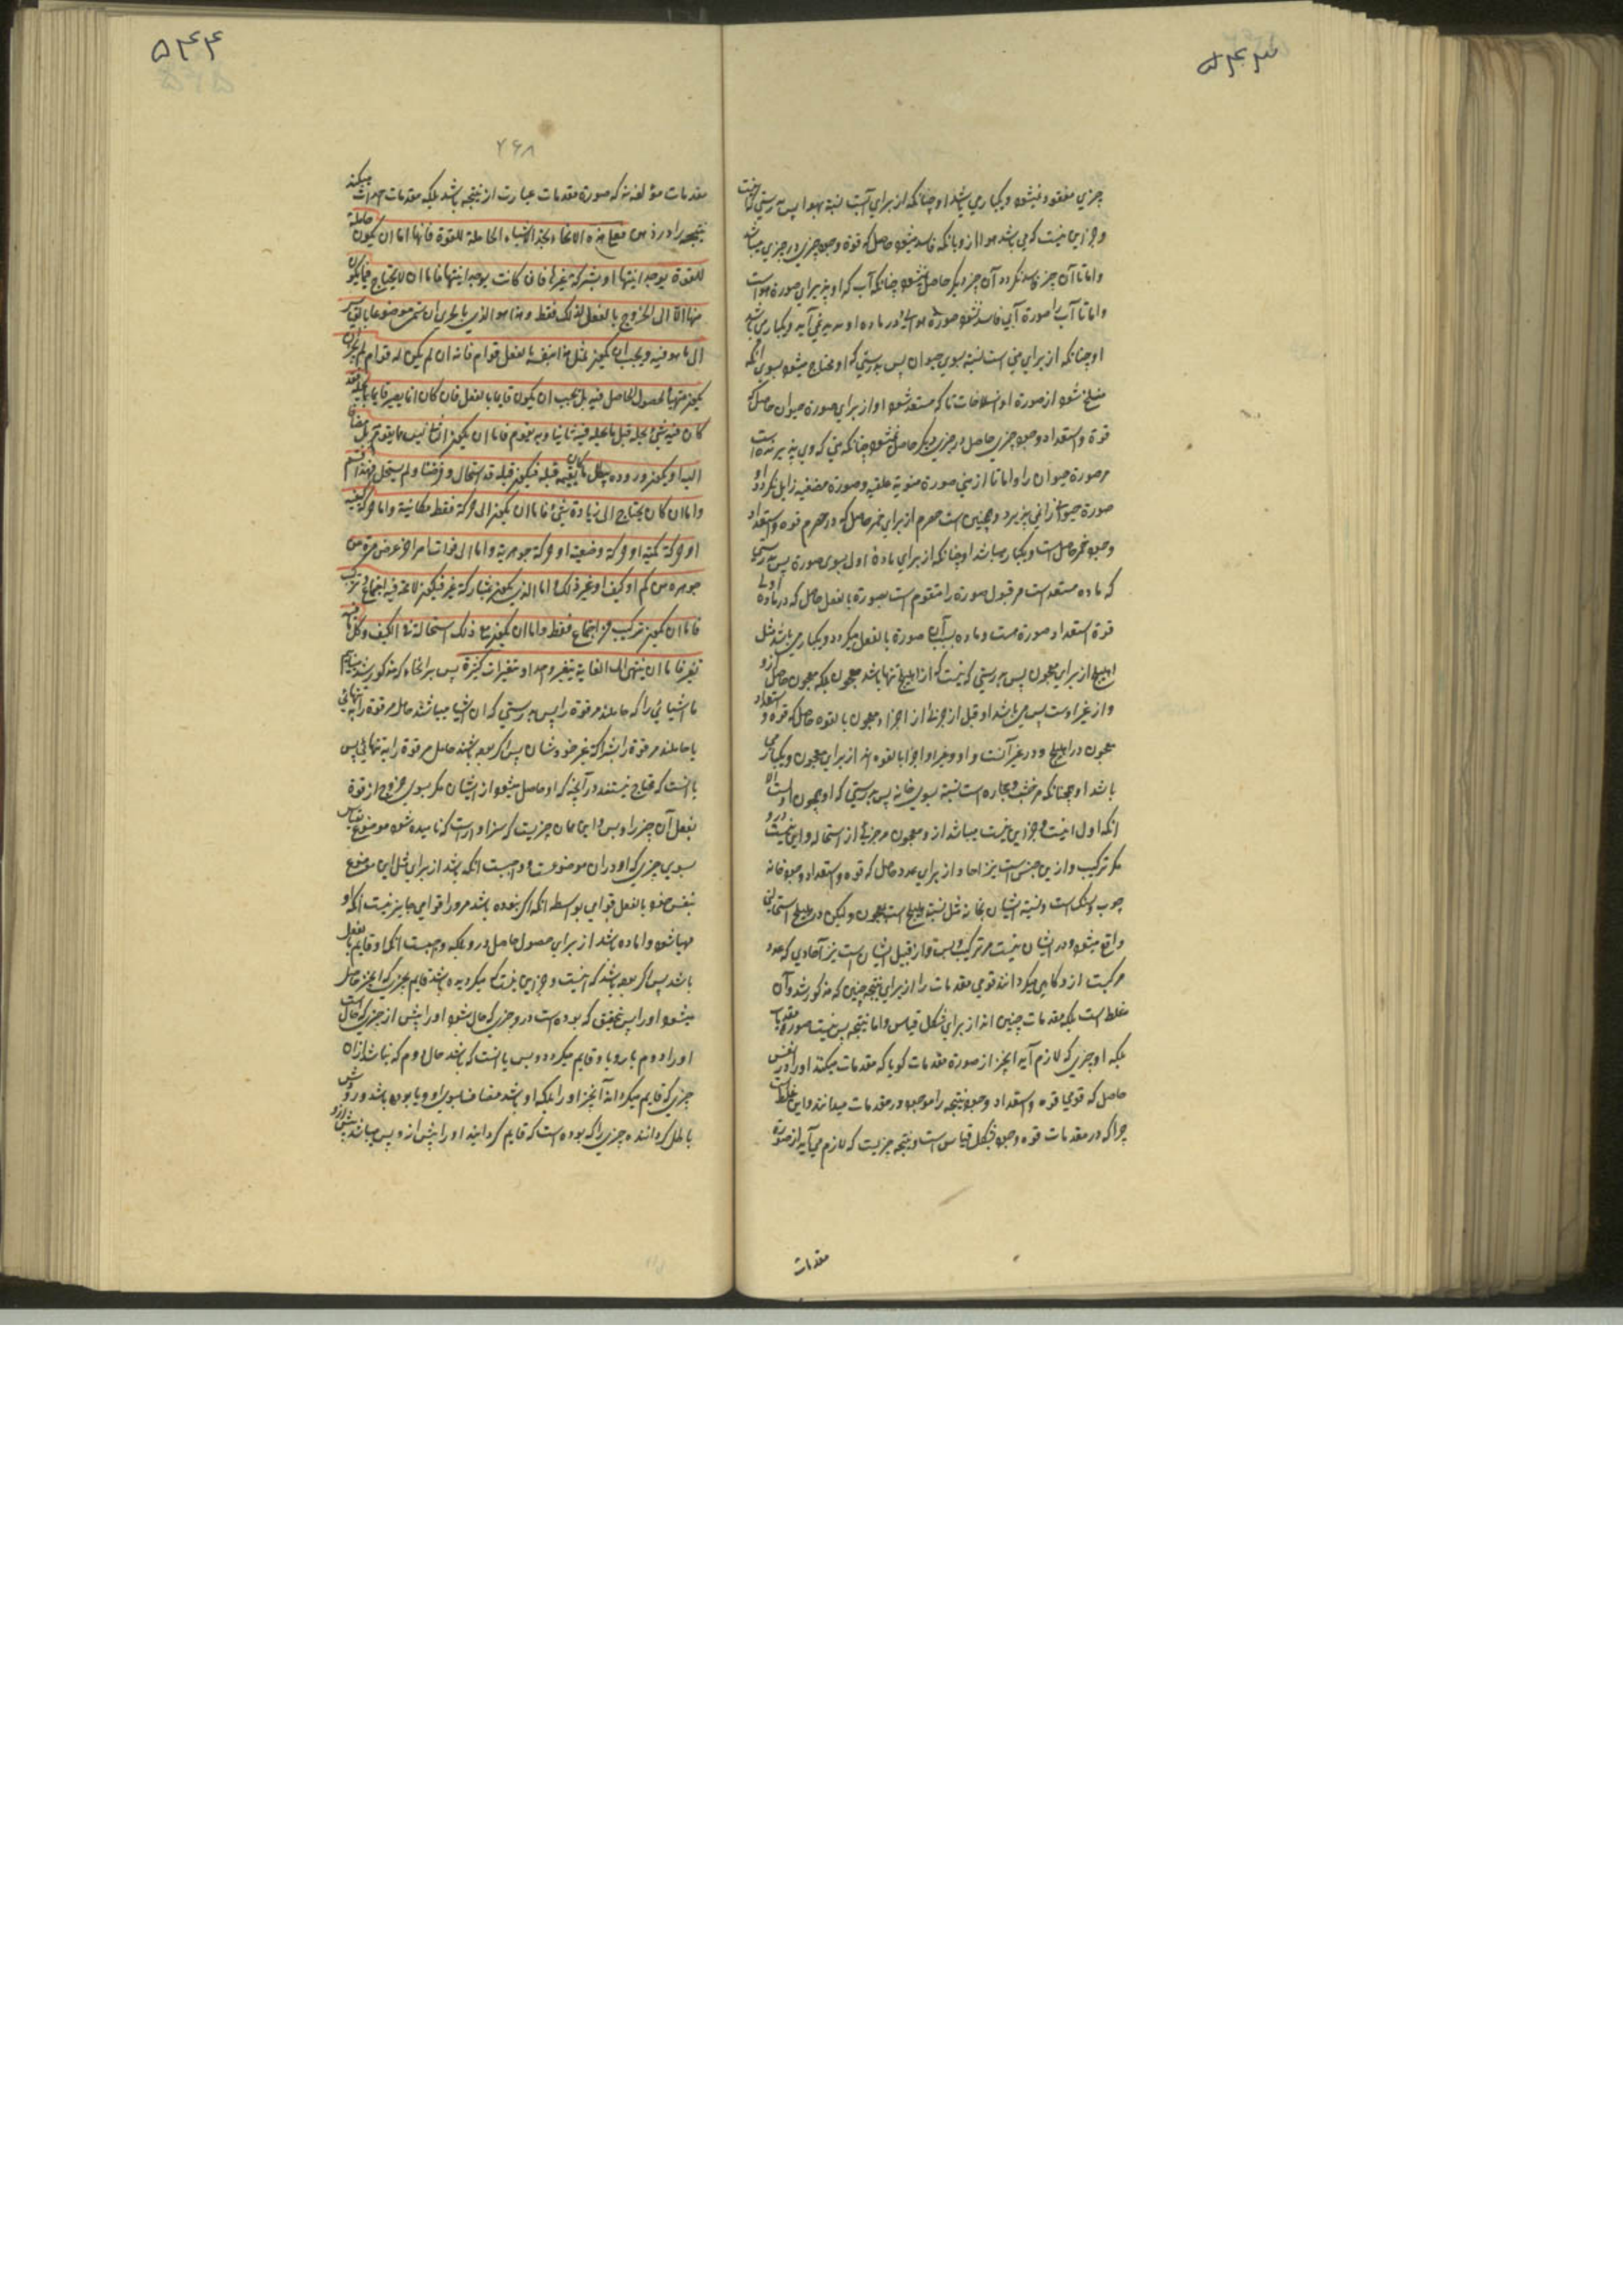 ۵۴۳
چیزی مفقود نمیشود و یکباری باشد او چنانکه از برای آبست نسبة بهوا پس بدرستی که
و جز این نیست که می باشد هوا از و بانکه فاسد میشود حاصل که قوة وجود چیزی در چیزی میباشد
و اما تا آن چیز فاسد نگردد آن چیز دیگر حاصل نمیشود چنانکه آب که او پذیرای صورة هواست
و اما تا آب را صورة آبی فاسد نشود صورة هوائی در ماده او پدید نمی آید و یکباری باشد
او چنانکه از برای منی است نسبة بسوی حیوان پس بدرستی که او محتاج میشود بسوی آنکه
منسلخ شود از صورة او انسلاخات تا که مستعد شود او از برای صورة حیوان حاصل که
قوة و استعداد وجود چیزی حاصل در چیزی دیگر حاصل میشود چنانکه منی که وی پذیرنده است
مر صورة حیوان را و اما تا از منی صورة منویة علقیه و صورة مضغیه زایل نگردد او
صورة حیوانی را نمی پذیرد و همچنین است حصرم از برای خمر حاصل که در حصرم قوه و استعداد
وجود خمر حاصل است و یکبار میباشد او چنانکه از برای مادة اول بسوی صورة پس بدرستی
که ماده مستعد است مر قبول صورة را متقوم است بصورة بالفعل حاصل که در مادة اولی
قوة استعداد صورة هست و ماده بسبب آن صورة بالفعل میگردد و یکباری باشد مثل
اهلیلج از برای معجون پس بدرستی که نیست که از اهلیلج تنها باشد معجون بلکه معجون حاصل از و
و از غیر اوست پس می باشد او قبل از جزئی از اجزاء معجون بالقوه حاصل که قوه و استعداد
معجون در اهلیلج و در غیر آنست و او و غیر او اجزا بالقوه اند از برای معجون و یکبار می
باشد او چنانکه مر خشب و حجاره است نسبة بسوی خانه پس بدرستی که او همچون اول است الا
انکه اول اینست و جز این نیست میباشد از و معجون مر جزئی از استحاله و این نیست درو
مگر ترکیب و از ین جنس است نیز احاد از برای عدد حاصل که قوه و استعداد وجود خانه
چوب و سنگ است و نسبة ایشان بخانه مثل نسبة اهلیلج است بمعجون ولیکن در اهلیلج استحالتی
واقع میشود و در ایشان نیست مگر ترکیب و بس و از قبیل ایشان است نیز آحادی که عدد
مرکبست از و گاهی میگردانند قومی مقدمات را از برای نتیجه چنین که مذکور شد و آن
غلط است بلکه مقدمات چنین اند از برای شکل قیاس و اما نتیجه پس نیست صورة مقدمات
بلکه او چیزی که لازم آید انچیز از صورة مقدمات گویا که مقدمات میکنند او را در نفس
حاصل که قومی قوه و استعداد وجود نتیجه را موجود در مقدمات میدانند و این غلط است
چرا که در مقدمات قوه وجود شکل قیاس است و نتیجه چیزیست که لازم می آید از صورة
مقدمات
۵۴۴
۲۶۸
مقدمات مؤلفه نه که صورة مقدمات عبارت از نتیجه باشد بلکه مقدمات احداث میکند
نتیجه را در ذهن فعلی هذه الانحاء نجد الاشیاء الحاملة للقوة فانها اما ان یکون حاملة
للقوة بوحدانیتها او بشرکة غیرها فان کانت بوحدانیتها فاما ان لا یحتاج فیما یکون
منها الا الی الخروج بالفعل لذلک فقط و هذا هو الذی بالحری ان یسمی موضوعا بالقیاس
الی ما هو فیه و یجب ان یکون لمثل هذا بنفسه بالفعل قوام فانه ان لم یکن له قوام لم یجز ان
یکون متهیأ لحصول الحاصل فیه بل یجب ان یکون قایما بالفعل فان کان انما یصیر قایما بما یحله فقد
کان فیه شیء یحله قبل ما یحله فیه ثانیا و به یقوم فاما ان یکون الثانی لیس مما یقومه بل مضافا
الیه او یکون وروده یبطل ما کان یقیمه قبله فیکون قبله قد استحال و فرضناه لم یستحل فهذا قسم
و اما ان کان یحتاج الی زیادة شیء فاما ان یکون الی حرکة فقط مکانیة و اما حرکة کیفیة
او حرکة کمیة او حرکة وضعیة او حرکة جوهریة و اما الی فوات امر اخر عرض من
جوهره من کم او کیف او غیر ذلک و اما الذی یکون بمشارکة غیره فیکون لا محة فیه اجتماع و ترکیب
فاما ان یکون ترکیب من اجتماع فقط و اما ان یکون مع ذلک استحالة فی الکیف و کل ما فیه
تغیر فاما ان ینتهی الی الغایة بتغیر واحد او بتغیرات کثیرة پس بر انحاء که مذکور شد مییابیم
ما اشیائی را که حاملند مر قوة را پس بدرستی که ان اشیا میباشند حامل مر قوة را بتنهائی
یا حاملند مر قوة را بشراکة غیر خودشان پس اگر بوده باشند حامل مر قوة را به تنهائی پس
یا انست که محتاج نیستند در آنچه که او حاصل میشود از ایشان مگر بسوی خروج از قوة
بفعل آن چیز را و بس و این همان چیزیست که سزاوار است که نامیده شود موضوع بقیاس
بسوی چیزی که او در ان موضوعست و واجبست انکه باشد از برای مثل این موضوع
بنفس خود بالفعل قوامی بواسطه انکه اگر نبوده باشد مر او را قوامی جایز نیست انکه او
مهیا شود و اماده باشد از برای حصول حاصل درو بلکه واجبست انکه او قایم بالفعل
باشد پس اگر بوده باشد که اینست و جز این نیست که میگردیده باشد قایم بچیزی که انچیز حاصل
میشود او را پس بتحقیق که بوده است درو چیزی که حال شود او را پیش از چیزی که حال است
او را دوم بار و باو قایم میگردد و پس یا انست که باشد حال دوم که نباشد از ان
چیزی که قایم میگرداند آنچیز او را بلکه او باشد مضاف بسوی او و یا بوده باشد ورودش
باطل گرداننده چیزی را که بوده است که قایم گرداند او را پیش از و پس میباشد پیش از و